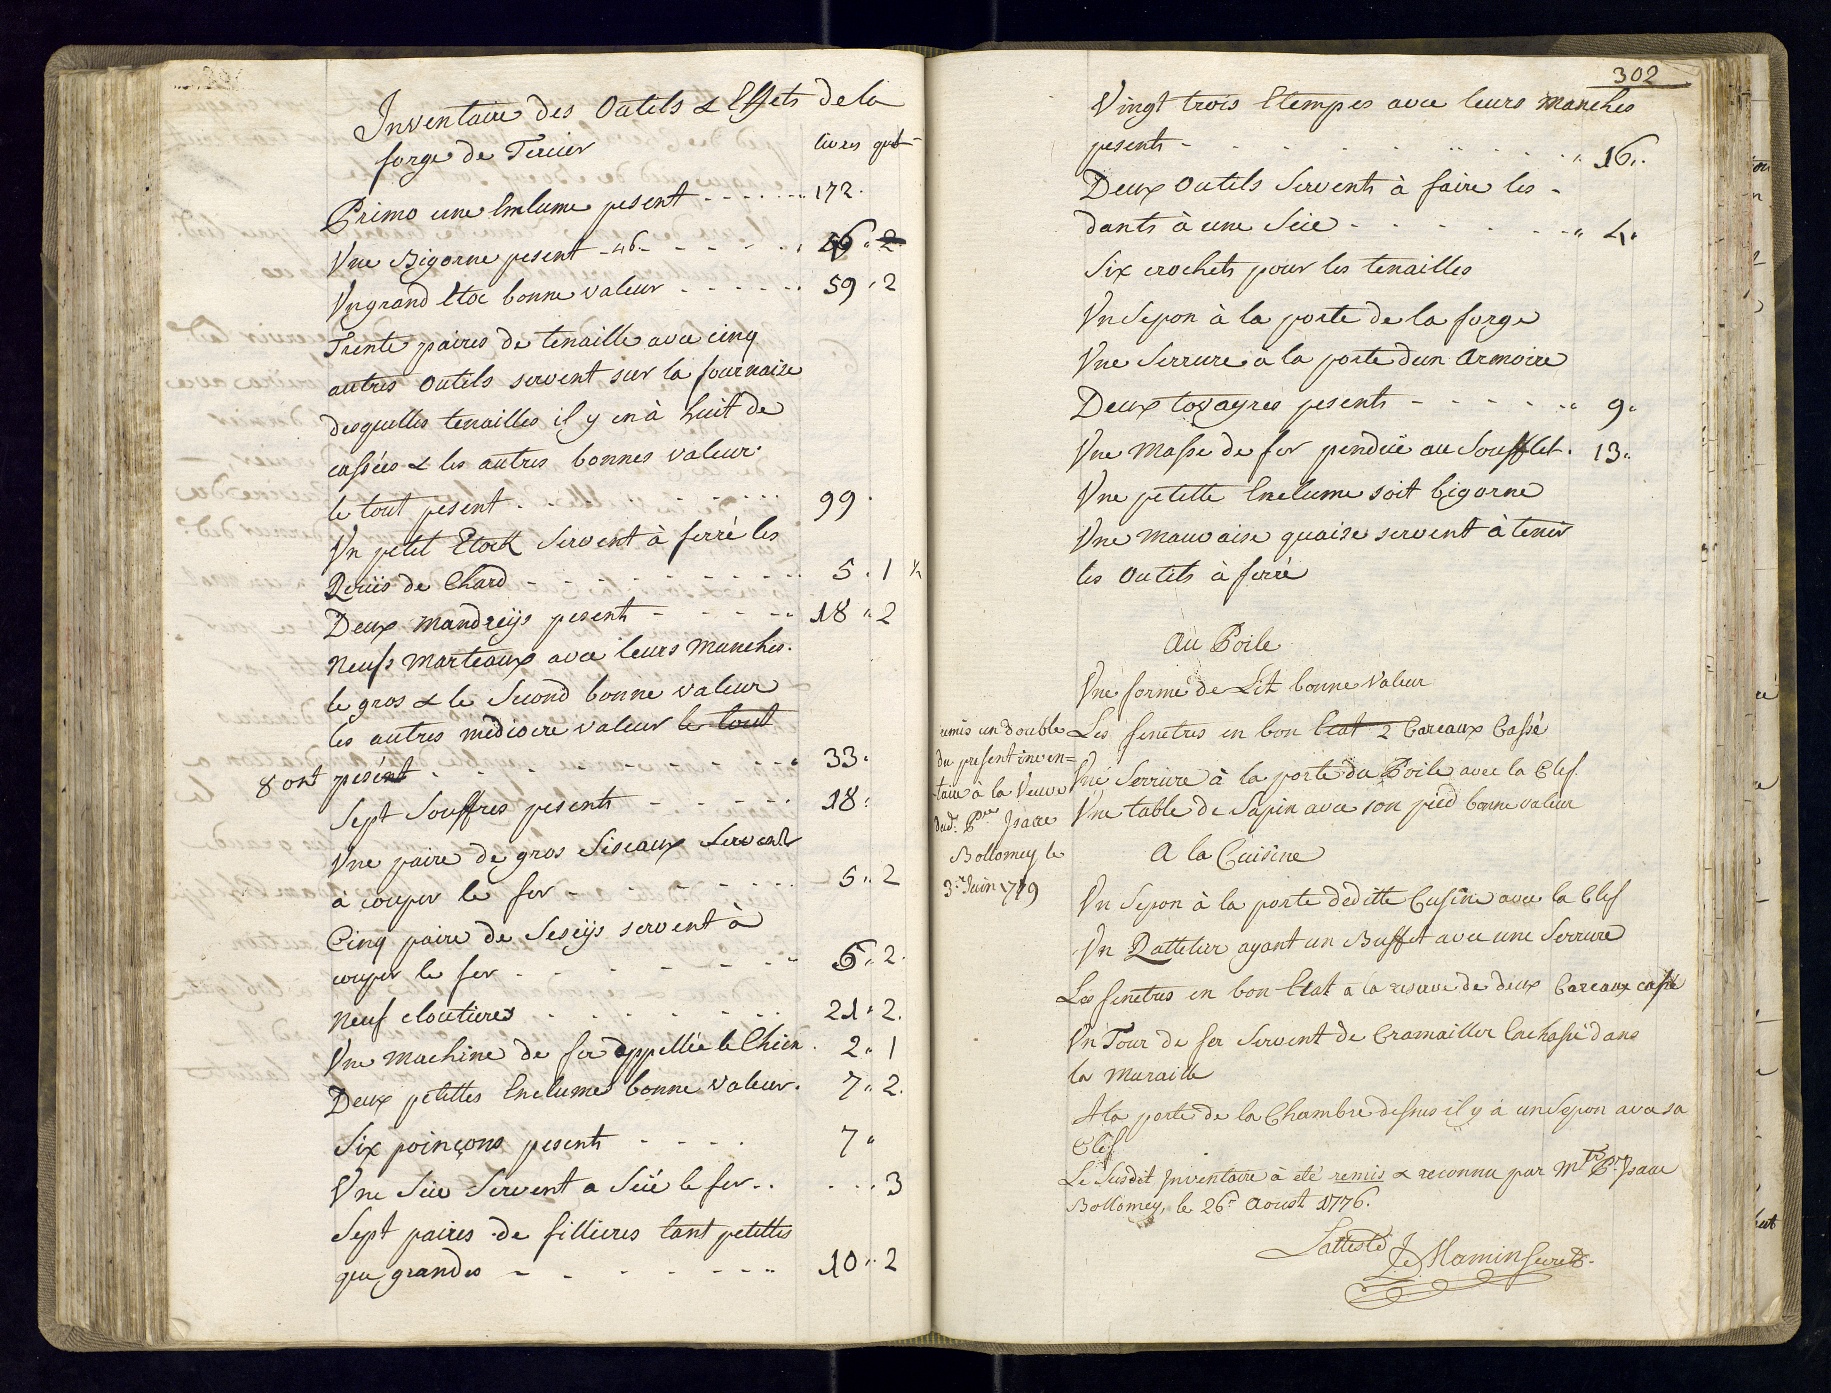 Inventaire des Outils & Effets de la
forge de Tercier livres qrt
Primo une Enlume pesent - - - - - - 172.
Une Bigorne pesent - 46 - - - - - - 46 " 2
Un grand Etoc bonne valeur - - - - - - 59 " 2
Trente paires de tenaille avec cinq
autres Outils servent sur la fournaise
desquelles tenailles il y en à huit de
cassées & les autres bonnes valeur.
le tout pesent - - - - - - 99.
Un petit Etock Servent à ferré les
Reuïs de Chard - - - - - - 5 . 1 ½
Deux Mandreijs pesents - - - - - 18 " 2
Neufs Marteaux avec leurs Manches.
le gros & le Second bonne valeur
les autres médiocre valeur le tout
8 ont pesént - - - - - - 33.
Sept Souffres pesents - - - - - 18.
Une paire de gros Siseaux Servent
à couper le fer - - - - - - 5 " 2
Cinq paire de Seseijs servent à
couper le fer - - - - - - 5 " 2.
Neuf cloutieres - - - - - - 21 " 2.
Une Machine de fer appellée le Chien . 2 " 1
Deux petittes Enclumes bonne valeur . 7 " 2.
Six poinçons pesents - - - - 7 "
Une Siie Servent a Siié le fer . . . . . 3
Sept paires de fillieres tant petittes
que grandes - - - - - - 10 " 2
302
Vingt trois Etempes avec leurs Manches
pesents - - - - - - " 16 "
Deux Outils Servents à faire les -
dants à une Siie - - - - - - " 4 "
Six crochets pour les tenailles
Un Sepon à la porte de la forge
Une Serrure à la porte d'un Armoire
Deux tovayres pesents - - - - - " 9 "
Une Masse de fer pendüe au Soufflet . 13 "
Une petitte Enclume soit bigorne
Une Mauvaise quaise servent à tenir
les Outils à ferré
Au Poile
Une forme de Lit bonne Valeur
Les fenetres en bon Etat 2 Careaux Cassé
Une Serrure à la porte du Poile avec la Clef.
Une table de Sapin avec son pied bonne valeur
remis un double
du present inven=
taire à la Veuve
dud.t Pre Isaac
Bollomey le
3.e Juin 1779
A la Cuisine
Un Sepon à la porte deditte Cusine avec la Clef
Un Rattelier ayant un Buffet avec une Serrure
Les fenetres en bon Etat a la reserve de deux Careaux cassé
Un Tour de fer Servent de Cramailler Enchassé dans
la Muraille
A la porte de la Chambre dessus il y à un Sepon avec sa
Clef
Le Susdit Inventaire à eté remis & reconnu par Mtre Pre Isaac
Bollomey, le 26e Aoust 1776.
L'atteste J. Mamin Secret.